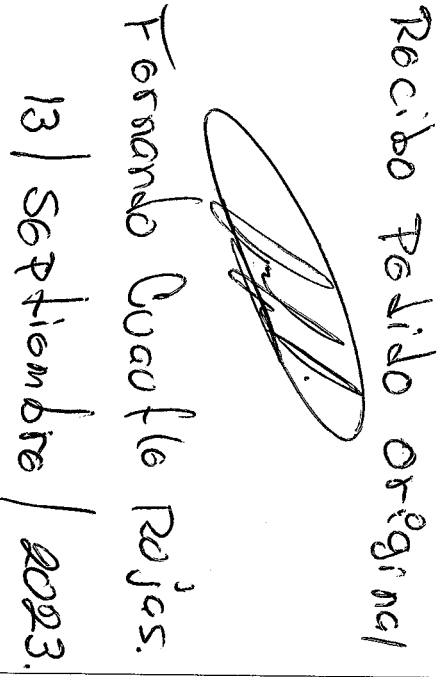 Recibo Pedido original
Fernando Cuautle Rojas.
13 / Septiembre / 2023.